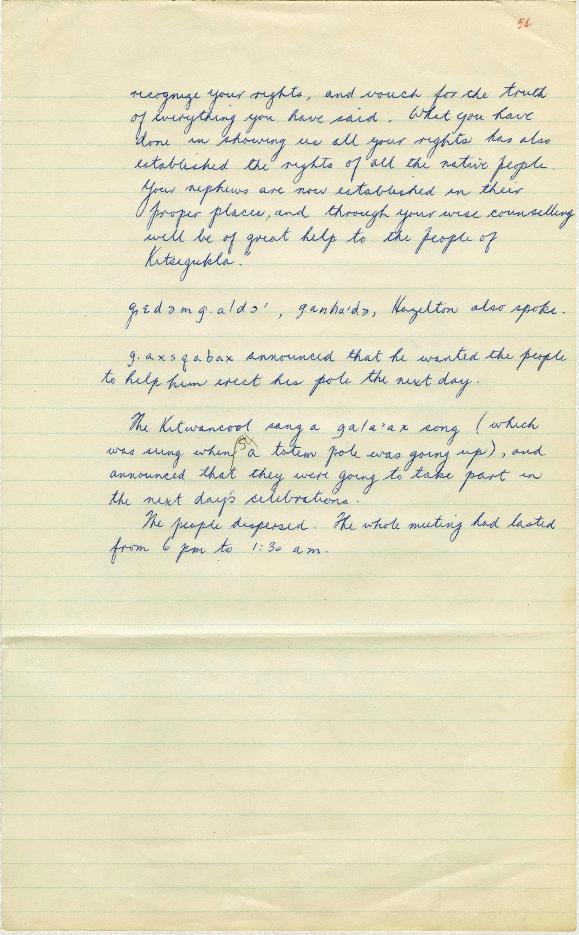 54
recognize your rights, and vouch for the truth
of everything you have said. What you have
done in showing us all your rights has also
established the rights of all the native people.
Your nephews are now established in their
proper places, and through your wise counselling
will be of great help to the people of
Kitsegukla."
gɛdəmg.aldɔ', ganha'dɔ, Hazelton also spoke.
g.axsqabax announced that he wanted the people
to help him erect his pole the next day.
The Kitwancool sang a gala'ax song (which
(54)
was sung when a totem pole was going up), and
announced that they were going to take part in
the next day's celebrations.
The people dispersed. The whole meeting had lasted
from 6 pm to 1:30 am.